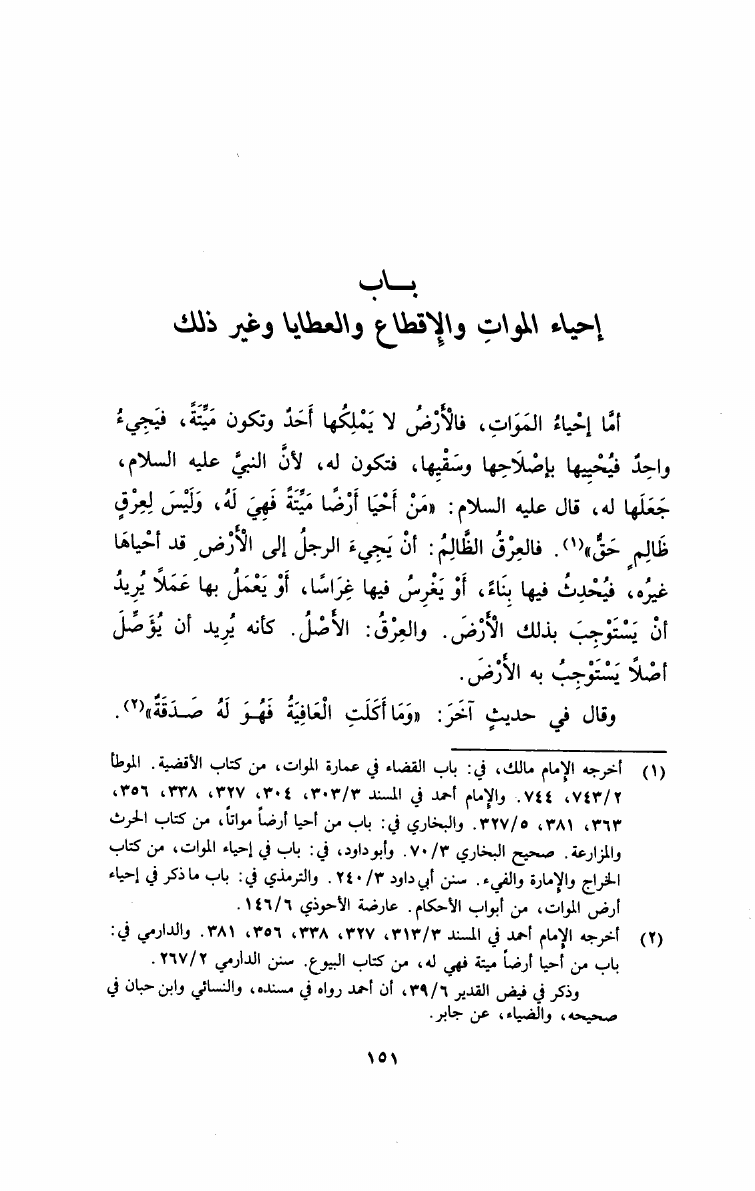 بـــاب
إحياء المواتِ والإِقطاع والعطايا وغير ذلك
أمَّا إحْياءُ المَوَاتِ، فالْأَرْضُ لا يَمْلِكُها أَحَدٌ وتكون مَيِّتَةً، فيَجِيءُ
واحِدٌ فيُحْيِيها بإصْلَاحِها وسَقْيِها، فتكون له، لأنَّ النبيَّ عليه السلام،
جَعَلَها له، قال عليه السلام: «مَنْ أَحْيَا أَرْضًا مَيِّتَةً فَهِيَ لَهُ، وَلَيْسَ لِعِرْقٍ
ظَالِمٍ حَقٌّ»(١). فالعِرْقُ الظَّالِمُ: أنْ يَجِيءَ الرجلُ إلى الْأَرْضِ قد أحْياهَا
غيرُه، فيُحْدِثُ فيها بِنَاءً، أَوْ يَغْرِسُ فيها غِرَاسًا، أَوْ يَعْمَلُ بها عَمَلًا يُرِيدُ
أنْ يَسْتَوْجِبَ بذلك الْأَرْضَ. والعِرْقُ: الأَصْلُ. كأنه يُرِيد أن يُؤَصِّلَ
أصْلًا يَسْتَوْجِبُ به الأَرْضَ.
وقال في حديثٍ آخَرَ: «وَمَا أَكَلَتِ الْعَافِيَةُ فَهُـوَ لَهُ صَـدَقَةٌ»(٢).
(١) أخرجه الإمام مالك، في: باب القضاء في عمارة الموات، من كتاب الأقضية. الموطأ
٧٤٣/٢، ٧٤٤. والإمام أحمد في المسند ٣٠٣/٣، ٣٠٤، ٣٢٧، ٣٣٨، ٣٥٦،
٣٦٣، ٣٨١، ٣٢٧/٥. والبخاري في: باب من أحيا أرضاً مواتاً، من كتاب الحرث
والمزارعة. صحيح البخاري ٧٠/٣. وأبو داود، في: باب في إحياء الموات، من كتاب
الخراج والإمارة والفيء. سنن أبي داود ٢٤٠/٣. والترمذي في: باب ما ذكر في إحياء
أرض الموات، من أبواب الأحكام. عارضة الأحوذي ١٤٦/٦.
(٢) أخرجه الإمام أحمد في المسند ٣١٣/٣، ٣٢٧، ٣٣٨، ٣٥٦، ٣٨١. والدارمي في:
باب من أحيا أرضاً ميتة فهي له، من كتاب البيوع. سنن الدارمي ٢٦٧/٢.
وذكر في فيض القدير ٣٩/٦، أن أحمد رواه في مسنده، والنسائي وابن حبان في
صحيحه، والضياء، عن جابر.
١٥١